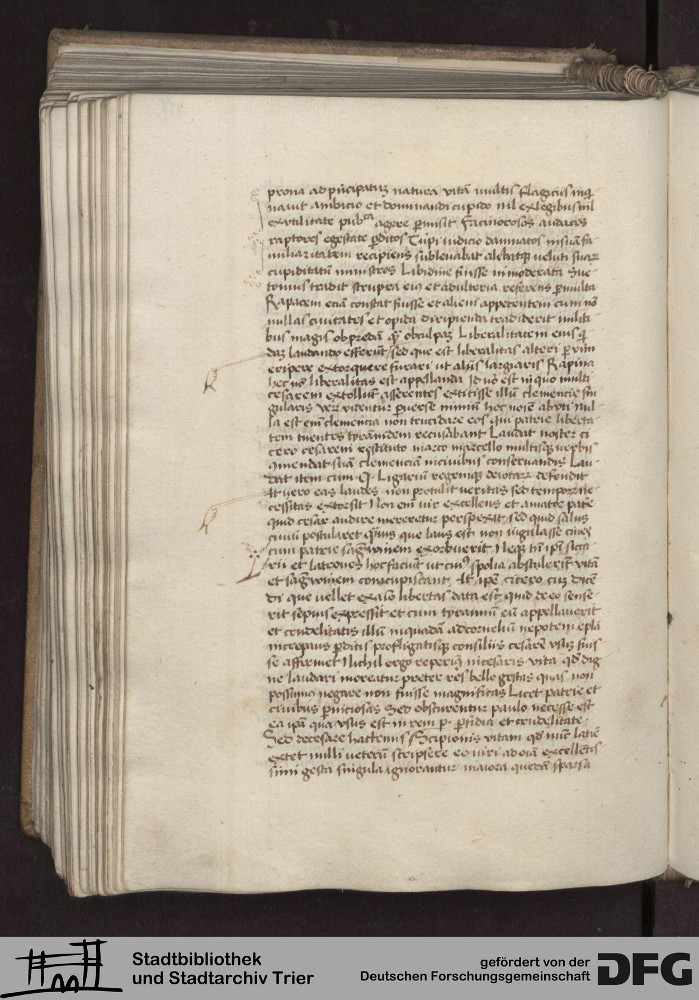 prona ad pncipatuz natura vitā multis flagiciis inq
navit Ambicio et dominandi cupido nil ex legibus nil
ex utilitate pubca agere pmisit facinorosos audaces
raptores egestate pditos Turpi iudicio damnatos in suā fa
miliaritatem recipiens sublevabat alebatqz veluti suarz
cupiditatū ministros Libidine fuisse inmoderata Sue
tonius tradit strupra eius et adulteria referens pmulta
Rapacem eciā constat fuisse et alieni appetentem cum nō
nullas civitates et opida diripienda tradiderit militi
bus magis ob predā qz ob culpaz Liberalitatem eius q
daz laudando efferūt / sed que est liberalitas alteri p vim
eripere extorquere furari ut aliis largiaris Rapina
hec nō liberalitas est appellanda Id vo est in quo multi
cesarem extollūt asserentes extitisse illū clemencie sin
gularis verz videntur pverse nimiū hoc noīe abuti nul
la est eīm clemencia non trucidare eos qui patrie liberta
tem tuentes tyrānidem recusabant Laudat noster ci
cero cesarem restituto marco marcello multisqz verbis
comendat suā clemenciā in civibus conservandis Lau
dat item cum Q. Ligariū regemqz deiotarz defendit
At vero eas laudes non protulit veritas sed temporz ne
cessitas extorsit Non eīm vir excellens et amator patie
quid cesar audire mereretur perspexit sed quid salus
civiū postularet Quius que laus est non iugulasse cives
cum patrie sagwinem exorbuerit Neqz tn ipī sica
rii et latrones hoc faciūt ut cui9 spolia abstulerīt vitā
et sagwinem concupiscant At ipe cicero cuz dice
di que vellet ex aīo libertas data est quid de eo sense
rit sepius expressit et cum tyrannū eū appellaverit
et crudelitatis illū in quadā ad corneliū nepotem epla
increpans pditis profligatisqz consiliis cesarē usus fuis
se affirmet Nichil ergo reperio in cesaris vita qd dig
ne laudari mereatur preter res bello gestas quas non
possumus negare non fuisse magnificas Licet patrie et
civibus pniciosas Sed obscurentur paulo necesse est
ea ipā qua usus est in rem p. pfidia et crudelitate.
Sed de cesare hactenus / Scipionis vitam qd nūc latīe
extet nulli veterū scripsere eo viri ad oīa excellētis
simi gesta singula ignorantur maiora quedā sparsa
Stadtbibliothek
und Stadtarchiv Trier
gefördert von der
Deutschen Forschungsgemeinschaft
DFG